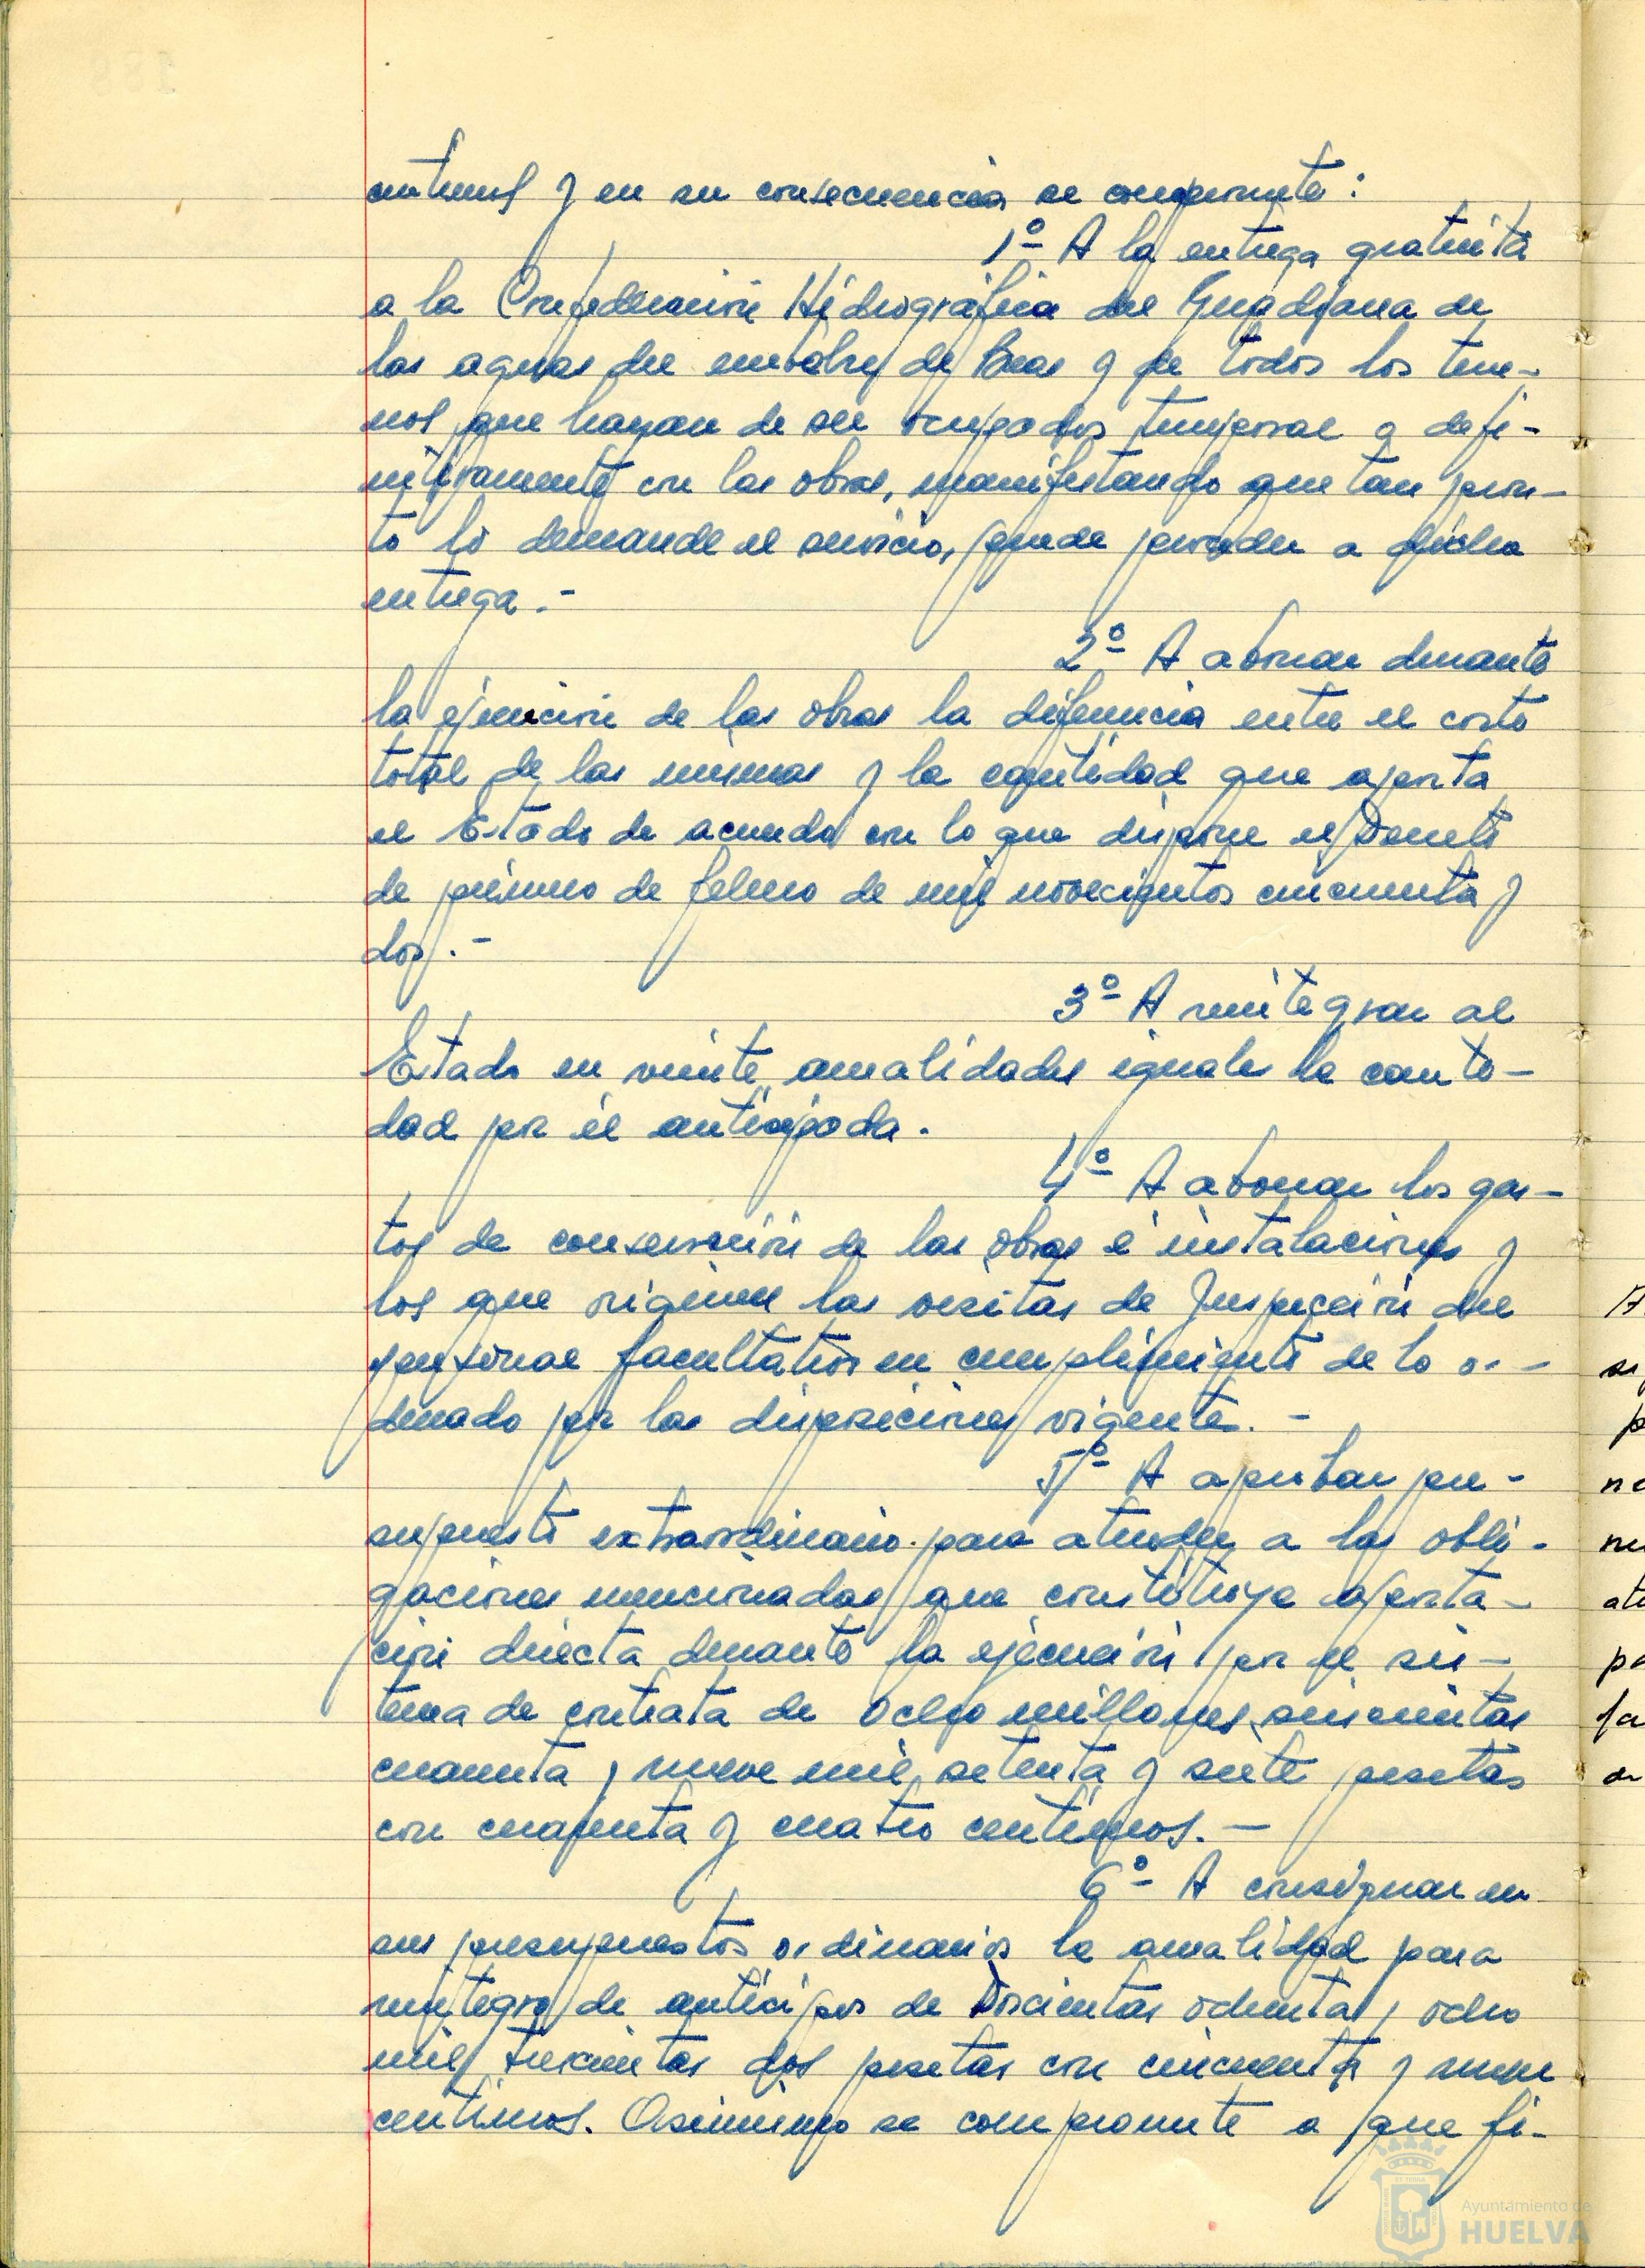 centimos y en su consecuencia se compromete:
1º A la entrega gratuita
a la Confederación Hidrográfica del Guadiana de
las aguas del embalse de Beas y de todos los terre-
nos que hayan de ser ocupados temporal o defi-
nitivamente con las obras, manifestando que tan pron-
to lo demande el servicio, puede proceder a dicha
entrega.-
2º A abonar durante
la ejecución de las obras la diferencia entre el costo
total de las mismas y la cantidad que aporta
el Estado de acuerdo con lo que dispone el Decreto
de primero de febrero de mil novecientos cincuenta y
dos.-
3º A reintegrar al
Estado en veinte anualidades iguales la canti-
dad por él anticipada.
4º A abonar los gas-
tos de conservación de las obras é instalaciones y
los que originen las visitas de Inspección del
personal facultativo en cumplimiento de lo or-
denado por las disposiciones vigentes.-
5º A aprobar pre-
supuesto extraordinario para atender a las obli-
gaciones mencionadas que constituye aporta-
ción directa durante la ejecución por el sis-
tema de contrata de ocho millones seiscientas
cuarenta y nueve mil setenta y siete pesetas
con cuarenta y cuatro centimos.-
6º A consignar en
sus presupuestos ordinarios la anualidad para
reintegro de anticipos de Doscientas ochenta y ocho
mil trescientas dos pesetas con cincuenta y nueve
centimos. Asimismo se compromete a que fi-
Ayuntamiento de
HUELVA